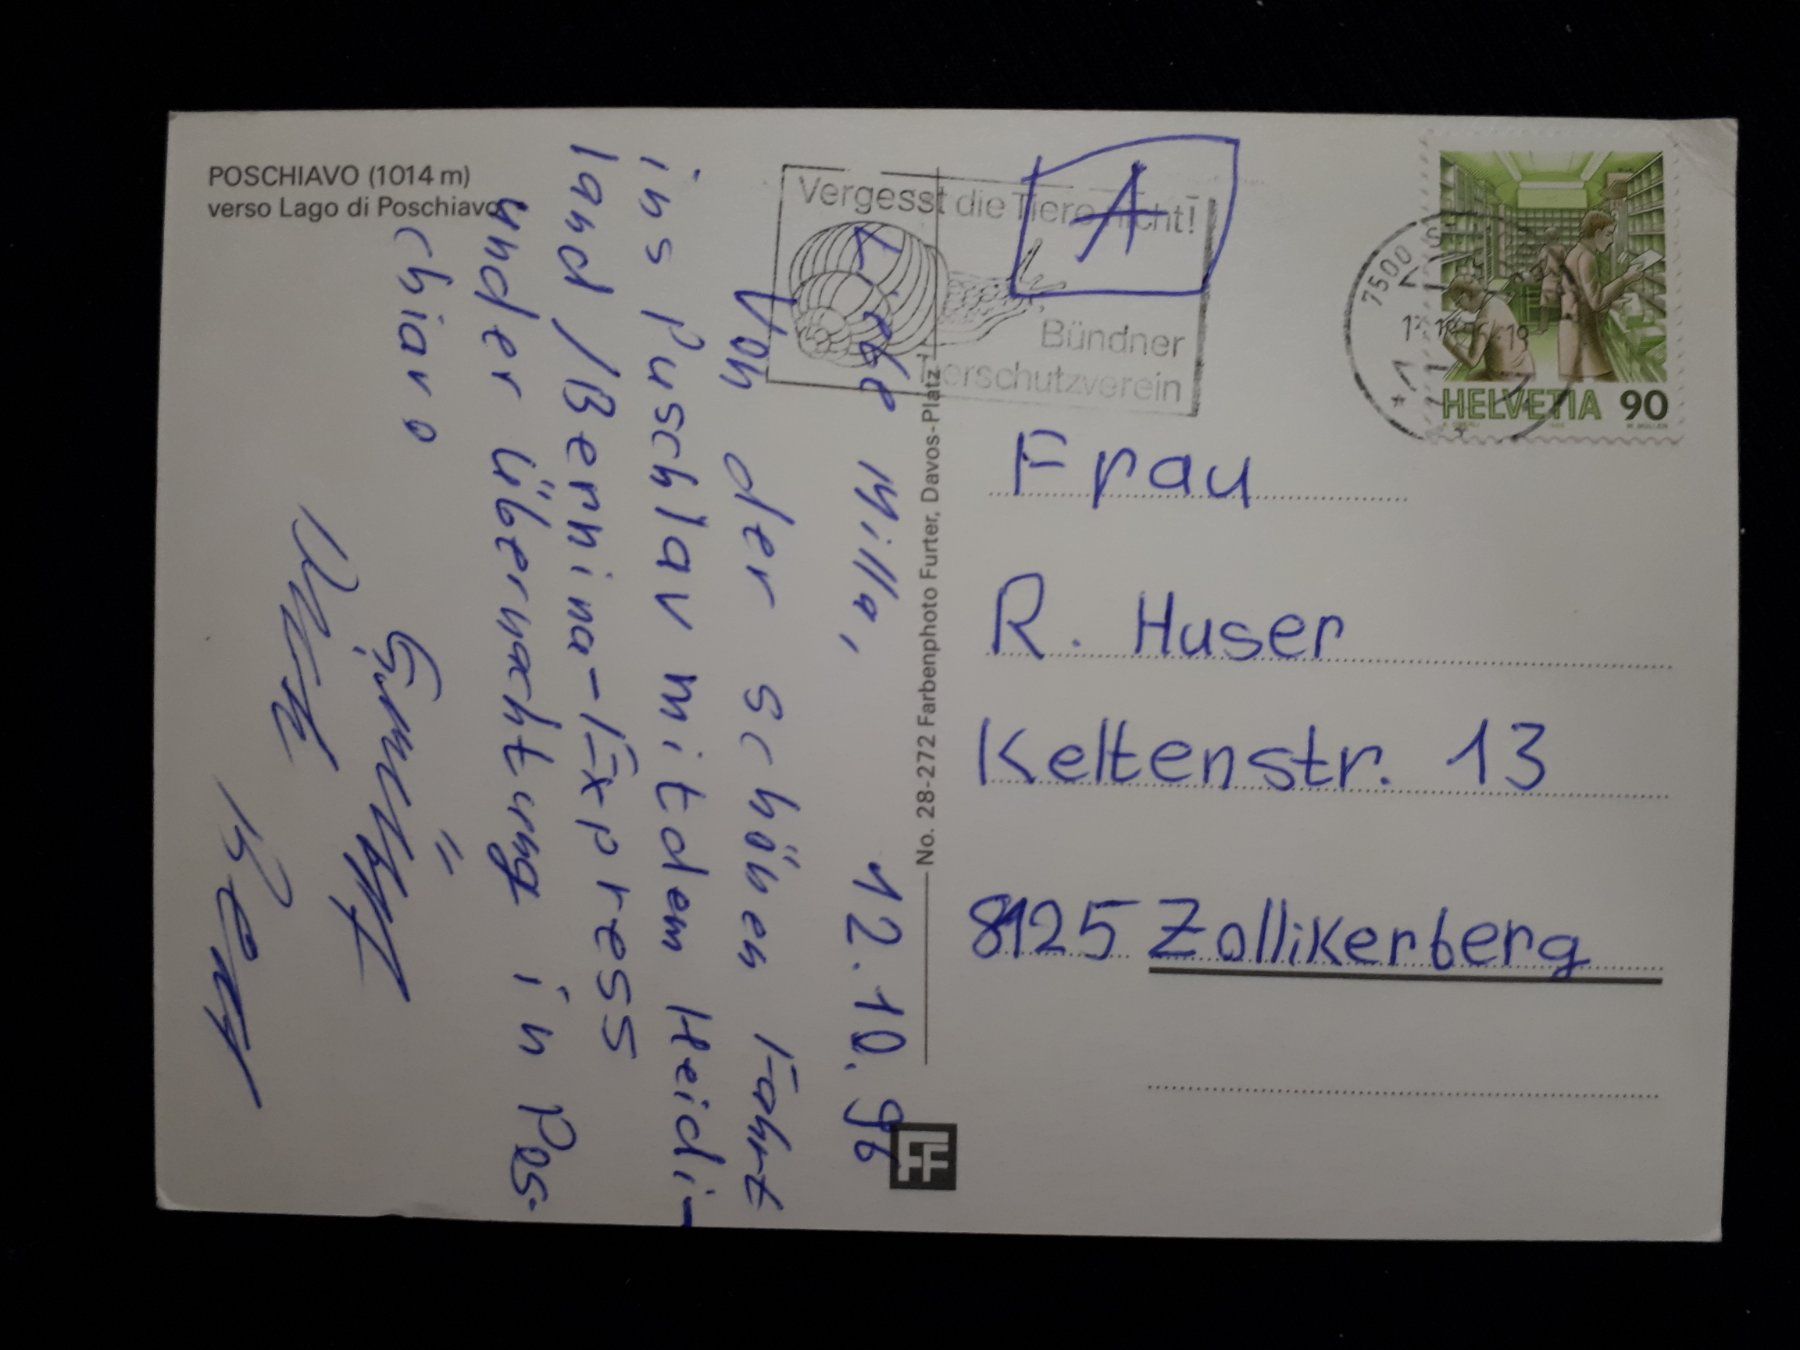 POSCHIAVO (1014 m)
verso Lago di Poschiavo
Liebe Milla,
12.10.96
Von der schönen Fahrt
ins Puschlav mit dem Heidi-
land/Bernina-Express
und der Übernachtung in Pos-
chiavo
No. 28-272 Farbenphoto Furter, Davos-Platz
Vergesst die Tiere nicht!
Bündner
Tierschutzverein
A
7500
HELVETIA 90
Frau
R. Huser
Keltenstr. 13
8125 Zollikerberg